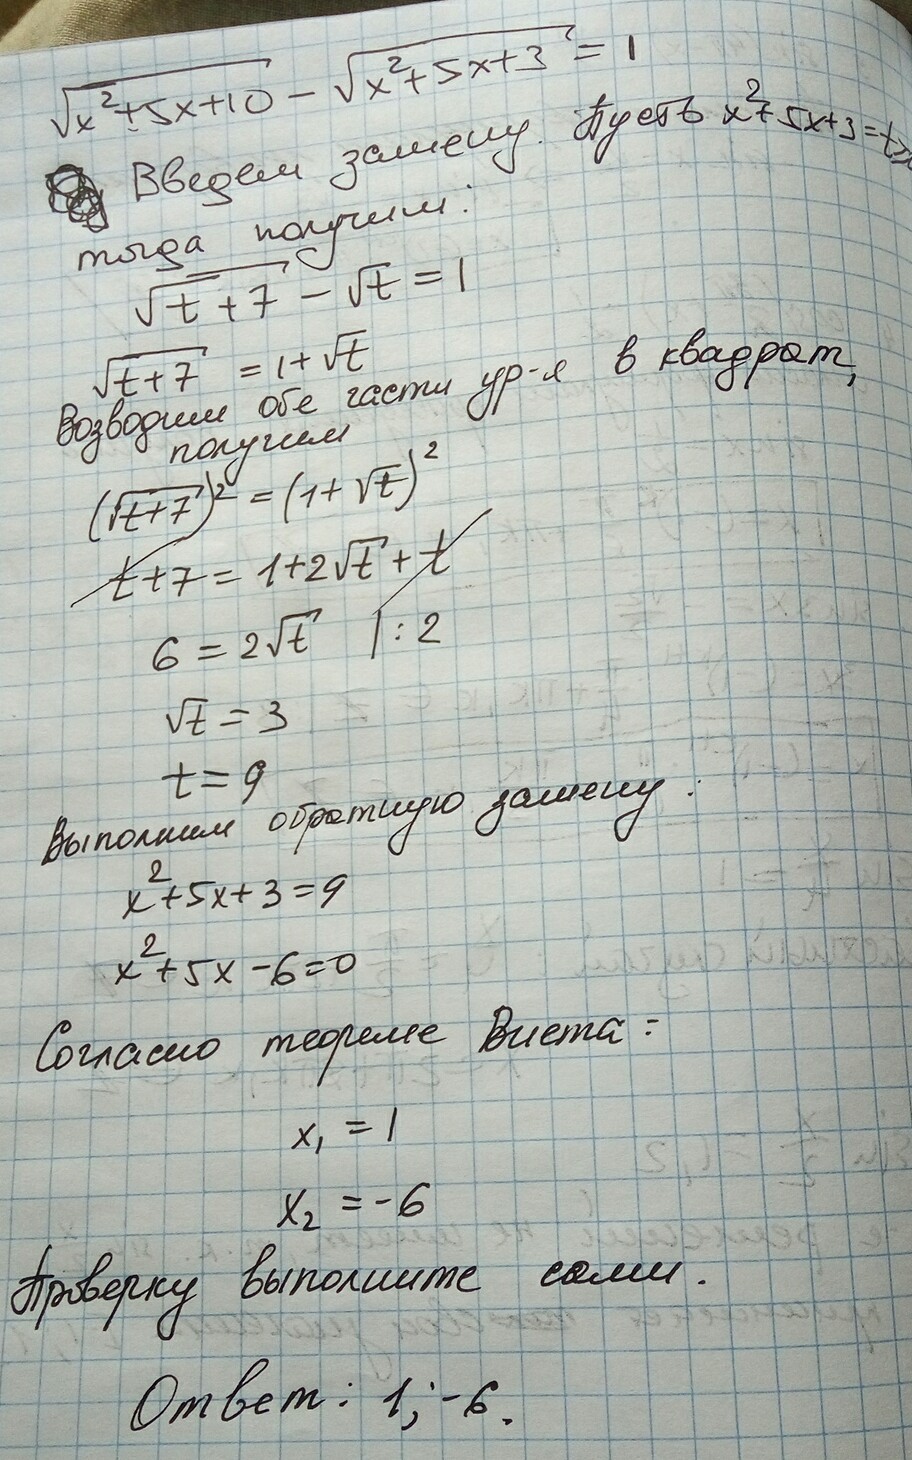 √x²+5x+10 − √x²+5x+3 = 1
Введем замену. Пусть x²+5x+3=t≥
тогда получим:
√t+7 − √t = 1
√t+7 = 1+√t
Возводим обе части ур-я в квадрат,
получим
(√t+7)² = (1+√t)²
t+7 = 1+2√t+t
6 = 2√t |:2
√t = 3
t = 9
Выполним обратную замену:
x²+5x+3=9
x²+5x−6=0
Согласно теореме Виета:
x₁ = 1
x₂ = −6
Проверку выполните сами.
Ответ: 1; −6.